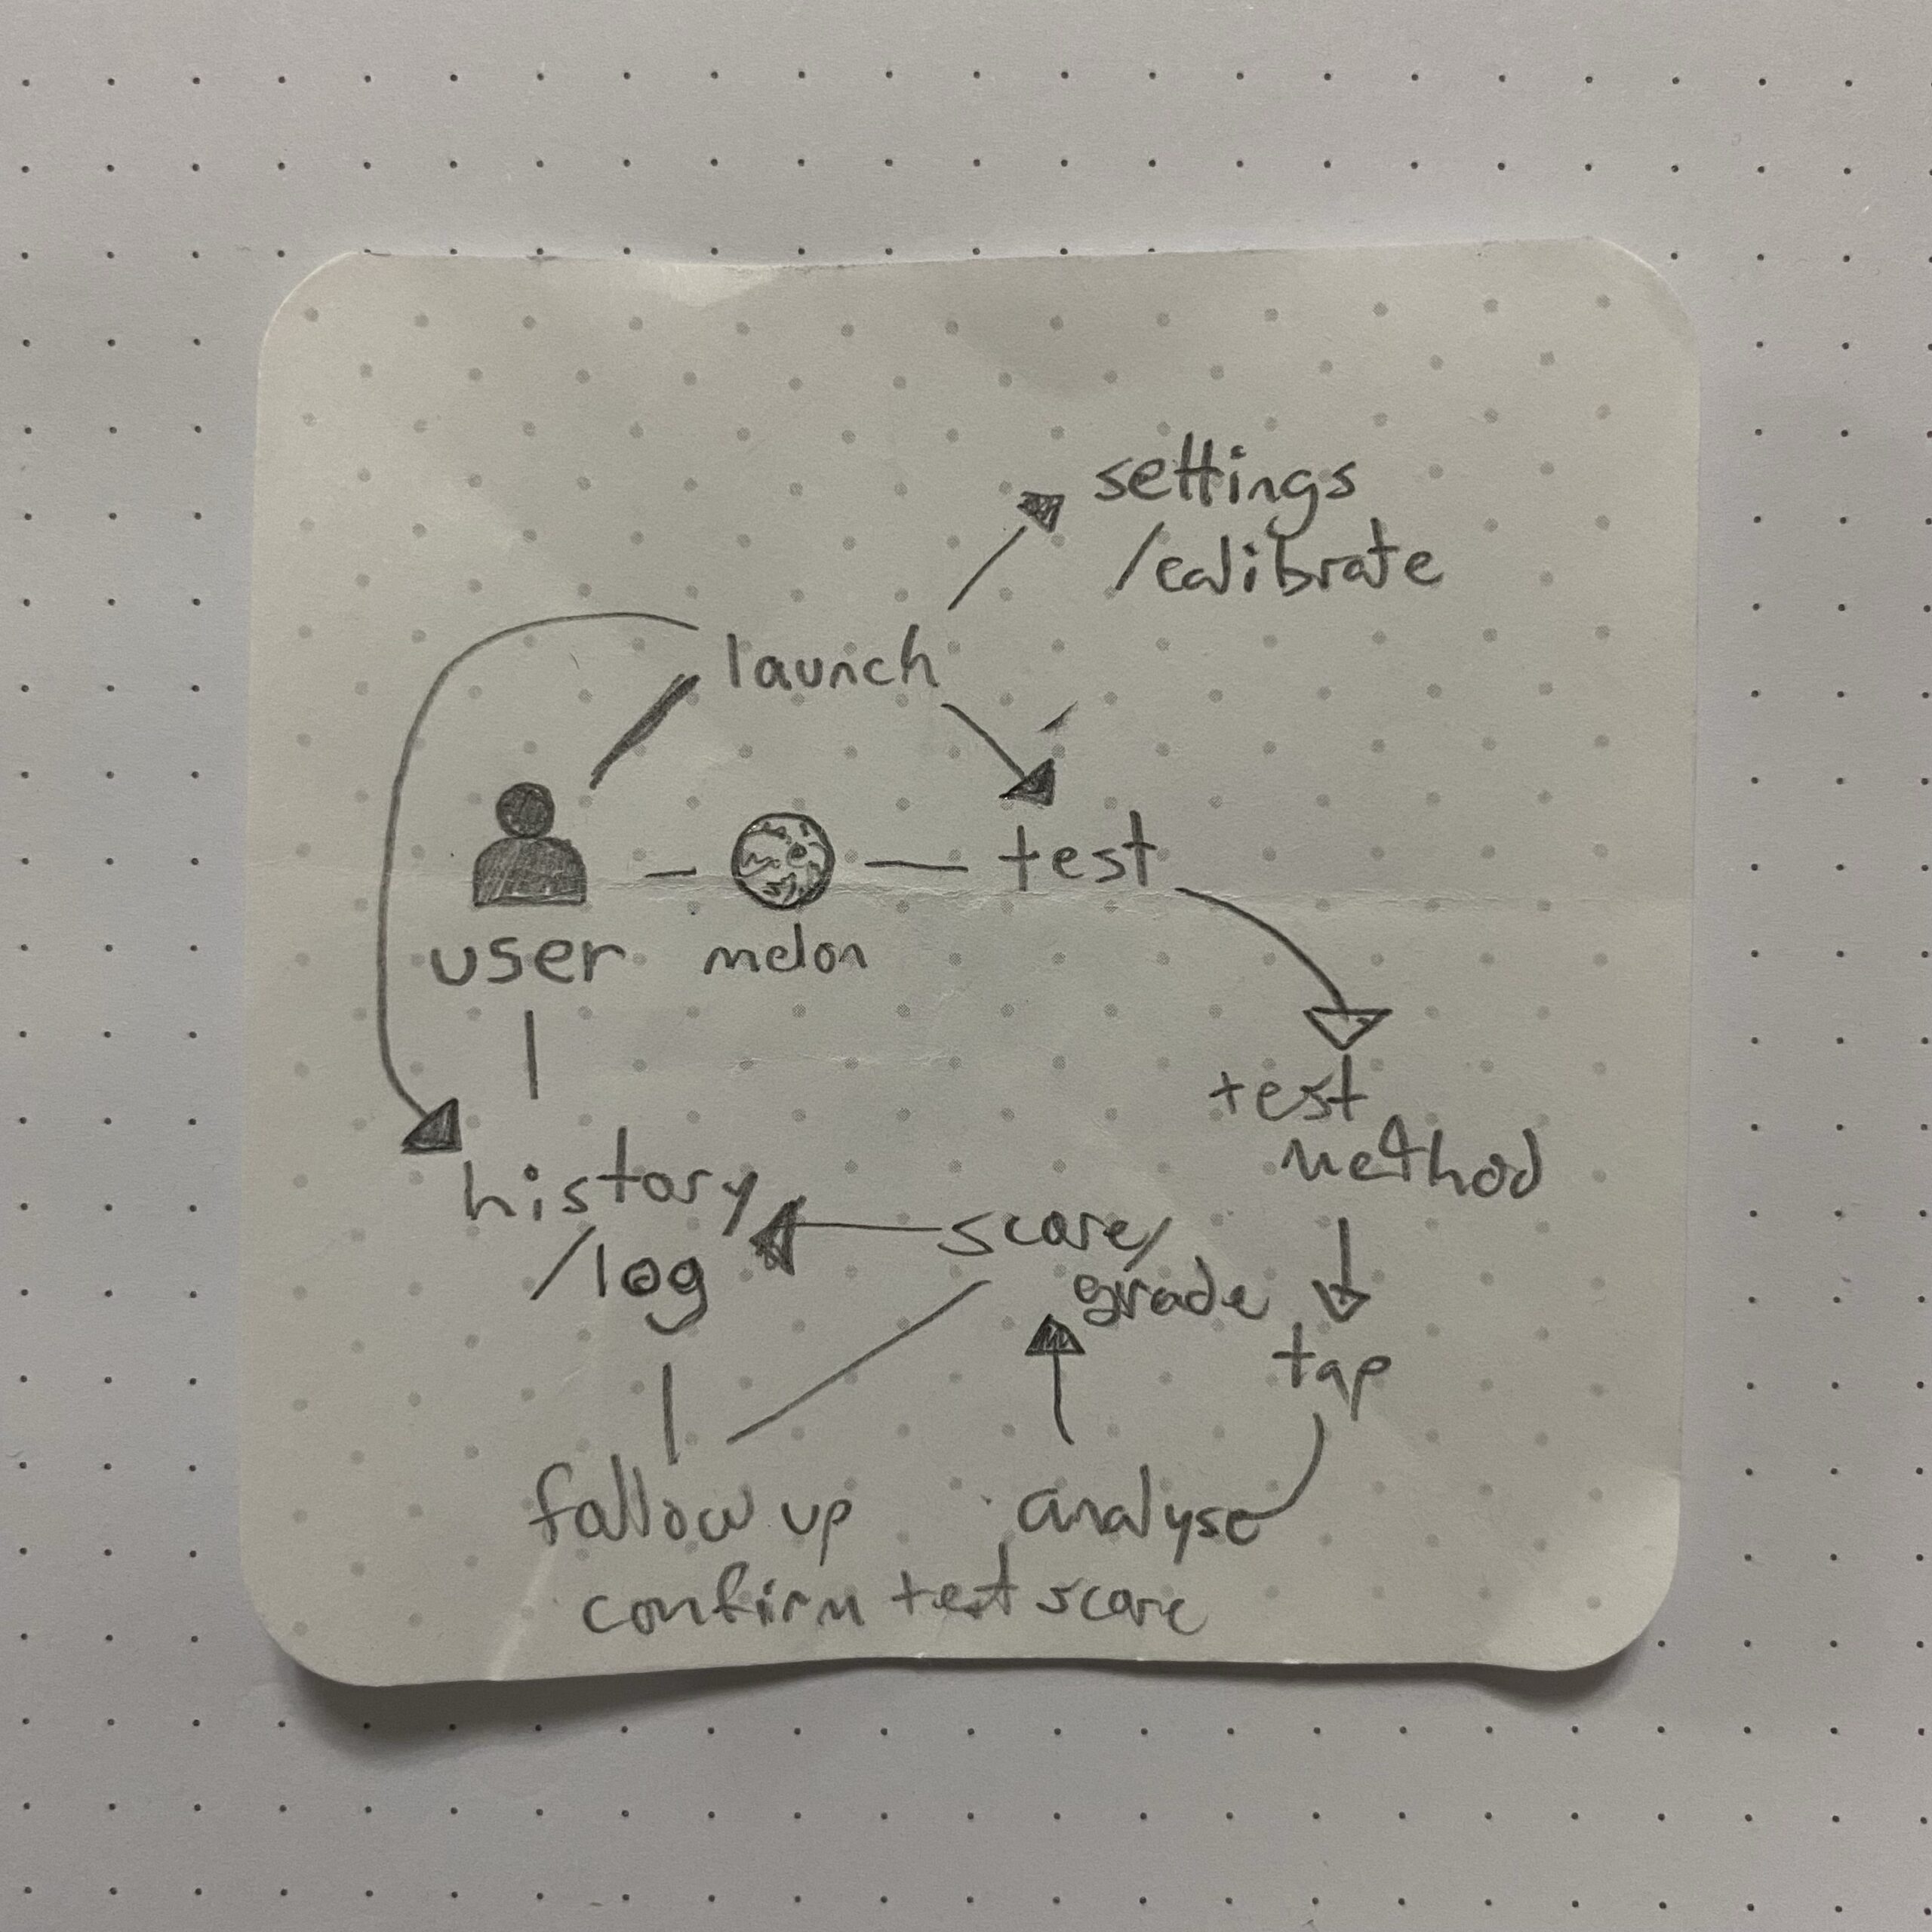 settings
/calibrate
launch
test
user
melon
test
method
history
/log
score/
grade
tap
follow up
analyse
confirm test score